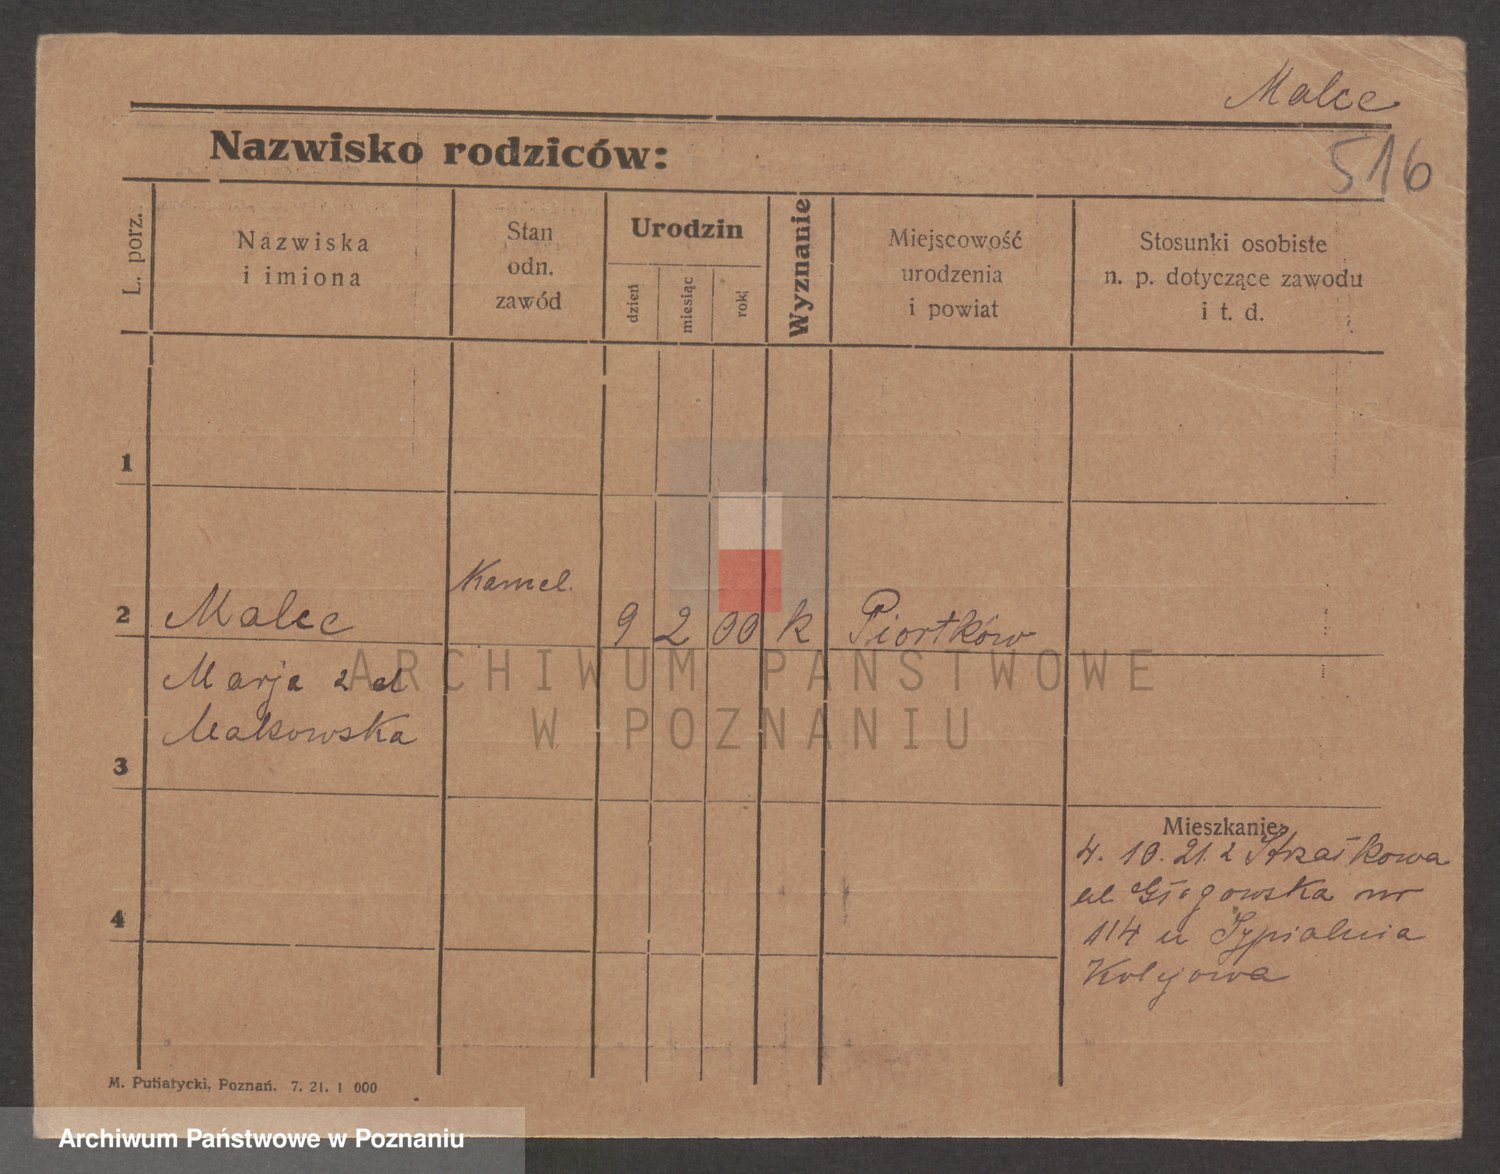 Malec
516
Nazwisko rodziców:
L. porz.
Nazwiska
i imiona
Stan
odn.
zawód
Urodzin
dzień
miesiąc
rok
Wyznanie
Miejscowość
urodzenia
i powiat
Stosunki osobiste
n. p. dotyczące zawodu
i t. d.
1
2
Malec
Kamel.
9
2
00
k
Piortków
Marja z d
Makowska
3
Mieszkanie
4. 10. 21. z
114 u Sypialnia
Kolejowa
4
M. Putiatycki, Poznań. 7. 21. 1 000
ARCHIWUM PAŃSTWOWE
W POZNANIU
Archiwum Państwowe w Poznaniu